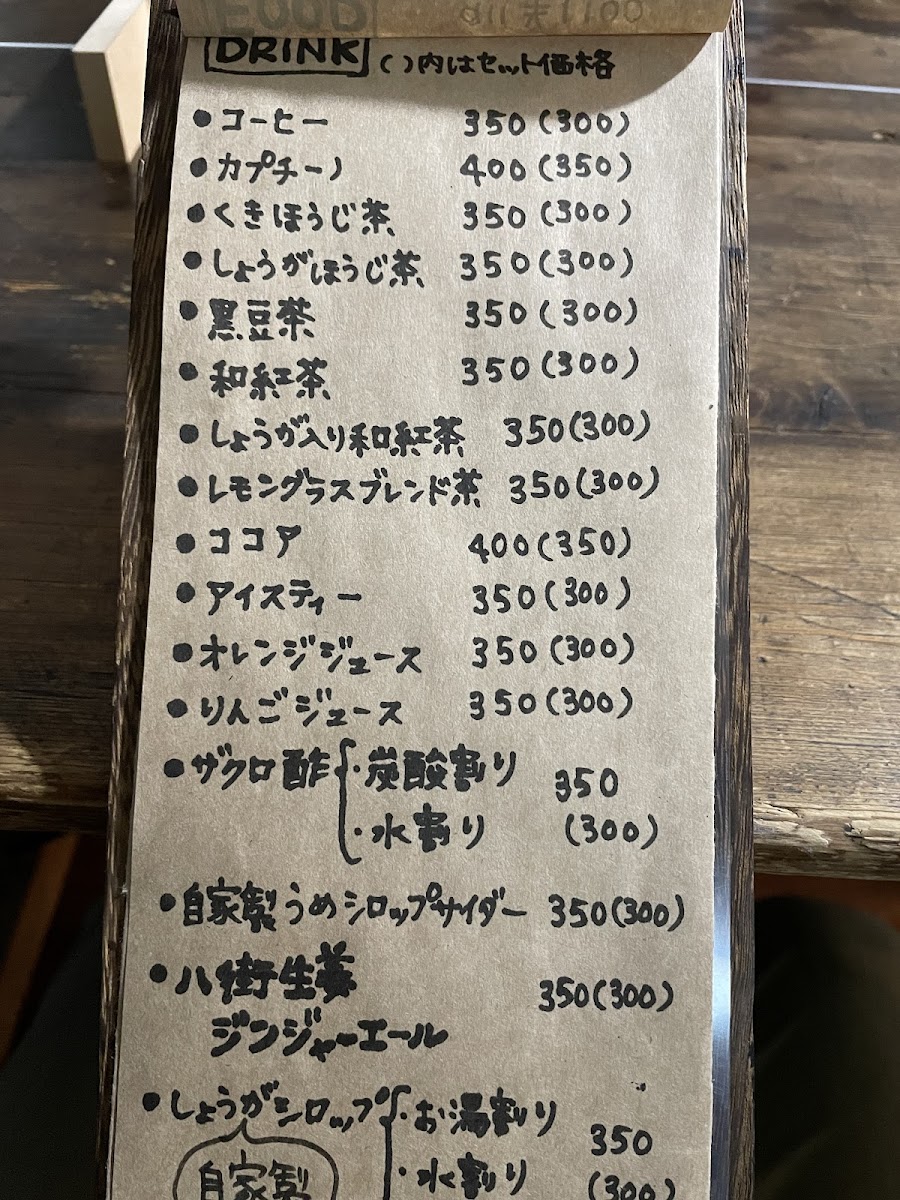 FOOD
DRINK ( )内はセット価格
●コーヒー 350(300)
●カプチーノ 400(350)
●くきほうじ茶 350(300)
●しょうがほうじ茶 350(300)
●黒豆茶 350(300)
●和紅茶 350(300)
●しょうが入り和紅茶 350(300)
●レモングラスブレンド茶 350(300)
●ココア 400(350)
●アイスティー 350(300)
●オレンジジュース 350(300)
●りんごジュース 350(300)
●ザクロ酢{・炭酸割り 350
・水割り (300)
●自家製うめシロップサイダー 350(300)
●八街生姜 350(300)
ジンジャーエール
●しょうがシロップ{・お湯割り 350
自家製 ・水割り (300)